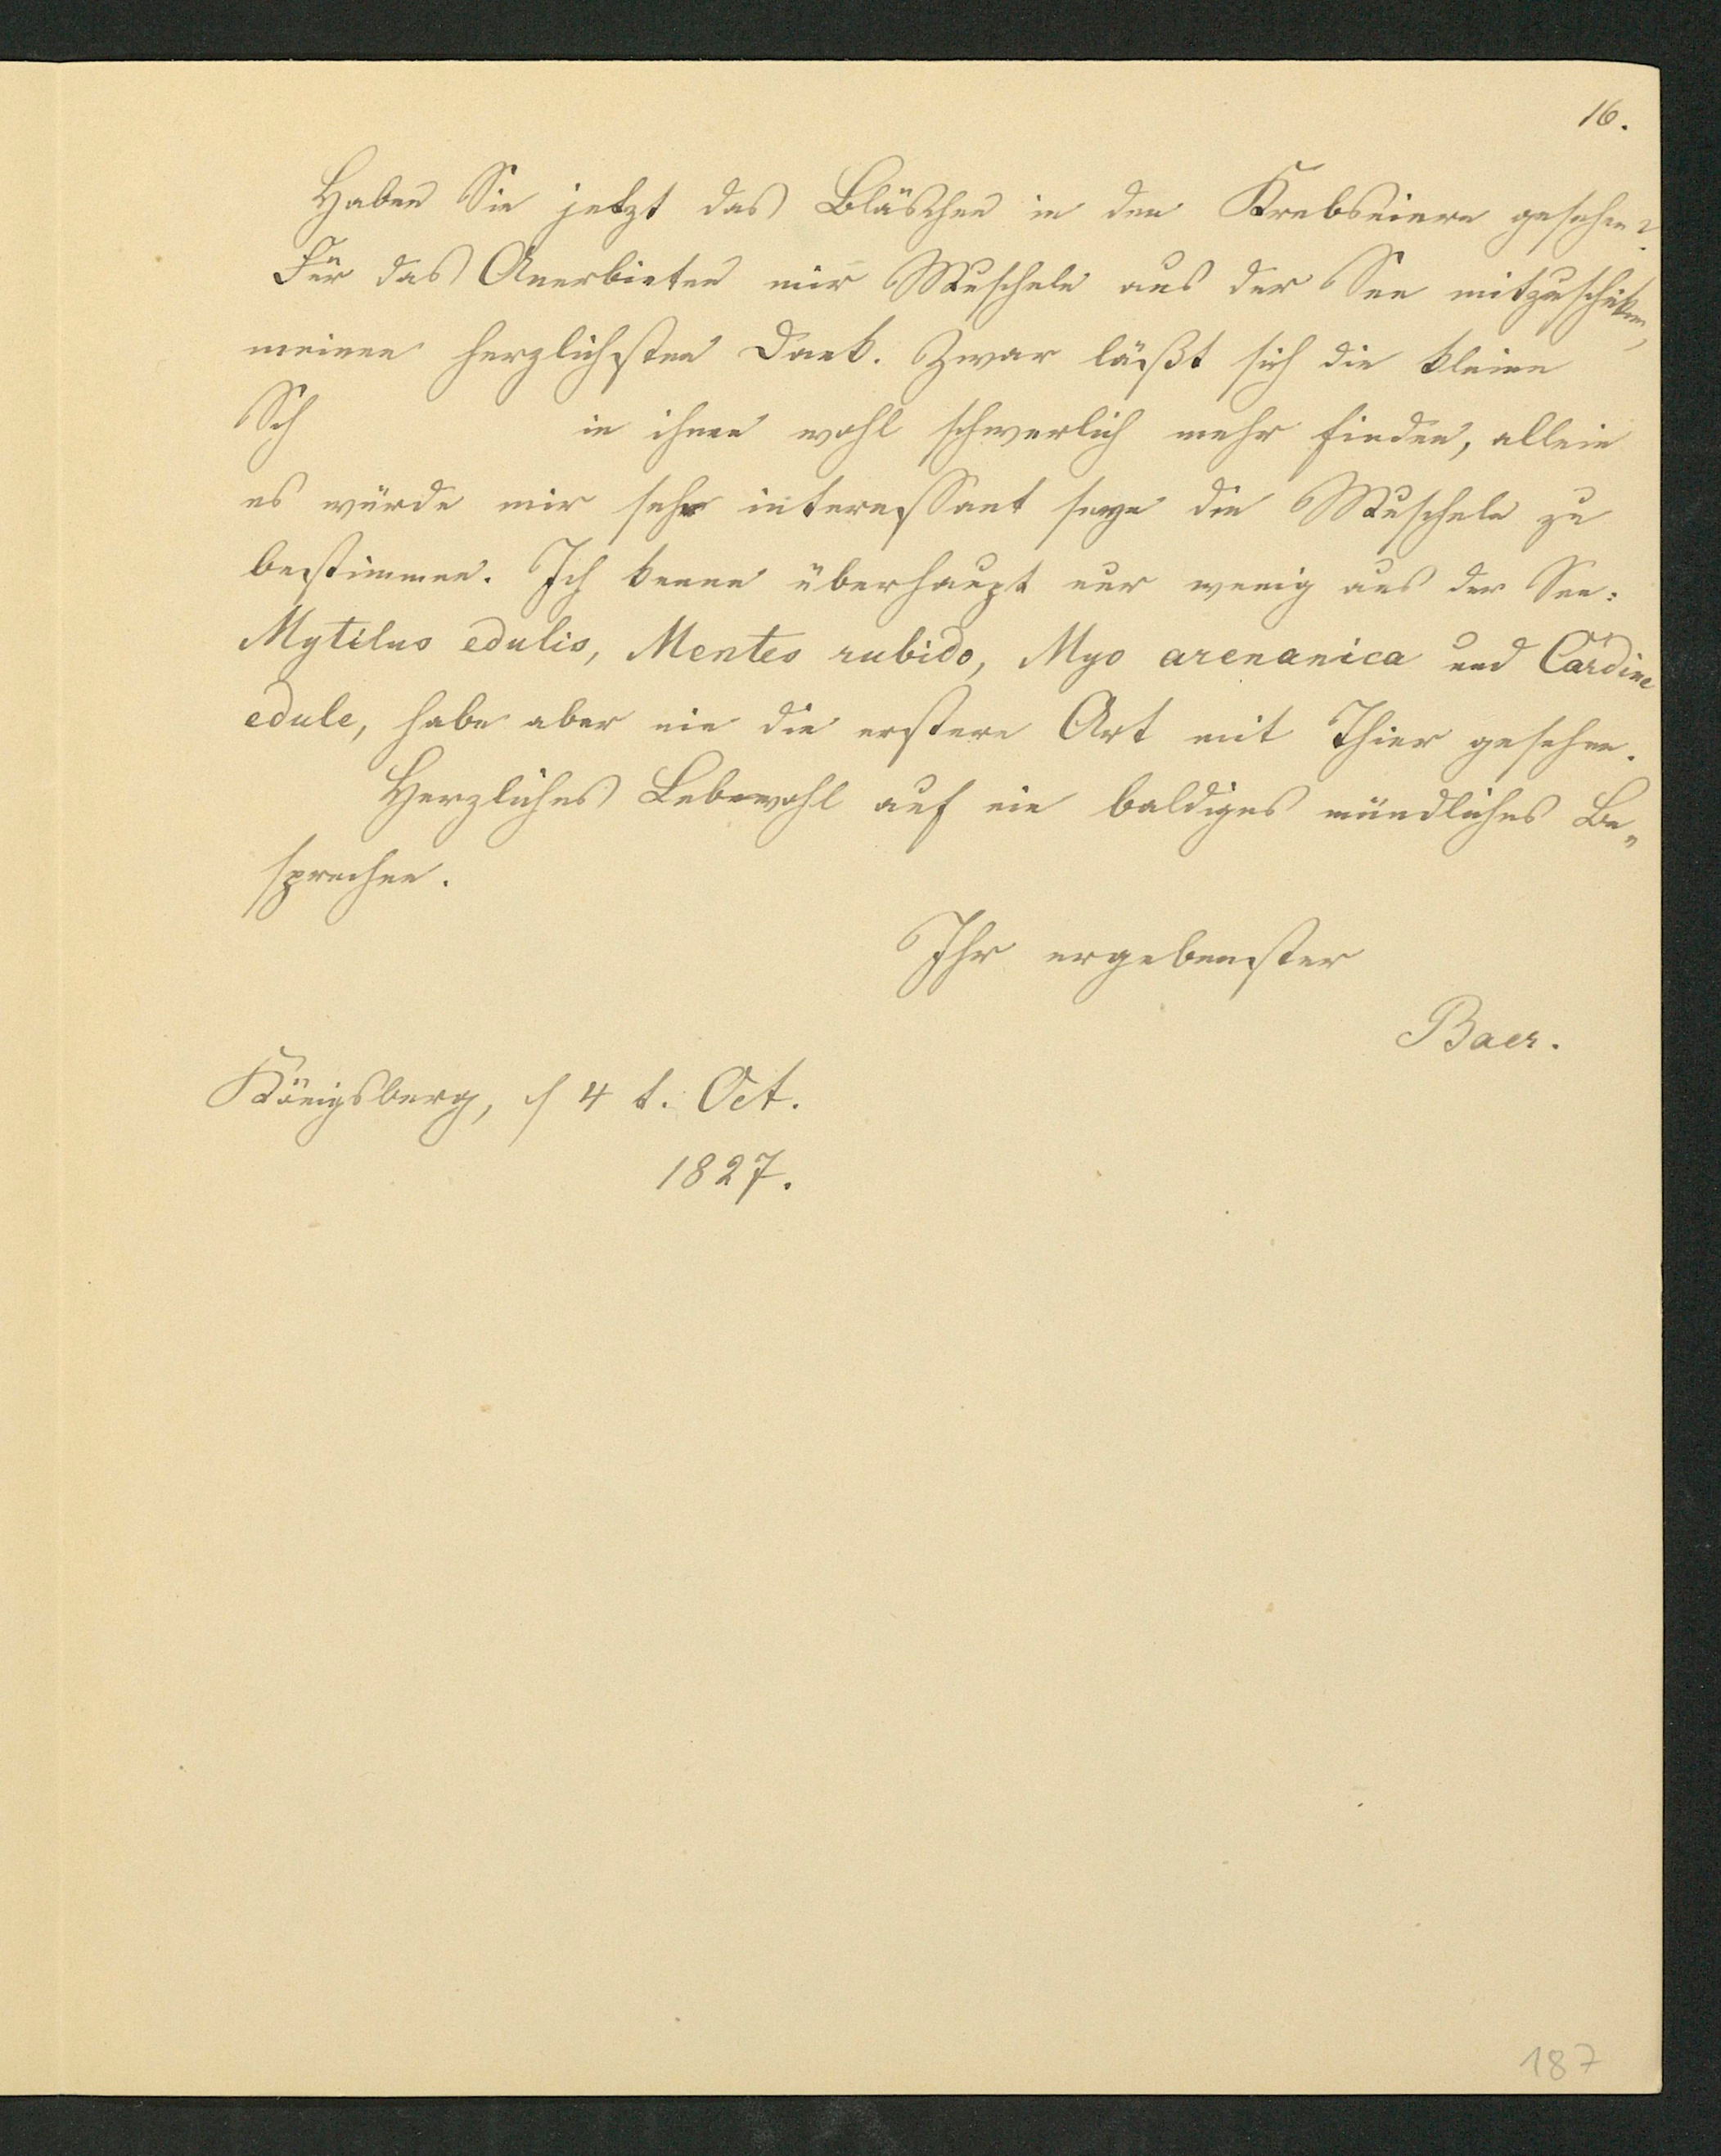 16.
Haben Sie jetzt das Bläschen in den Krebseiern gesehen?
Für das Anerbieten mir Muscheln aus der See mitzuschicken,
meinen herzlichsten Dank. Zwar läßt sich die kleine
Sch in ihnen wohl schwerlich mehr finden, allein
es würde mir sehr interessant seyn die Muscheln zu
bestimmen. Ich kenne überhaupt nur wenig aus der See:
Mytilus edulis, Mentes rubido, Myo arenanica und Cardine
edule, habe aber nie die erstere Art mit Thier gesehen.
Herzliches Lebewohl auf ein baldiges mündliches Be„
sprechen.
Ihr ergebenster
Baer.
Königsberg, d 4 t. Oct.
1827.
187